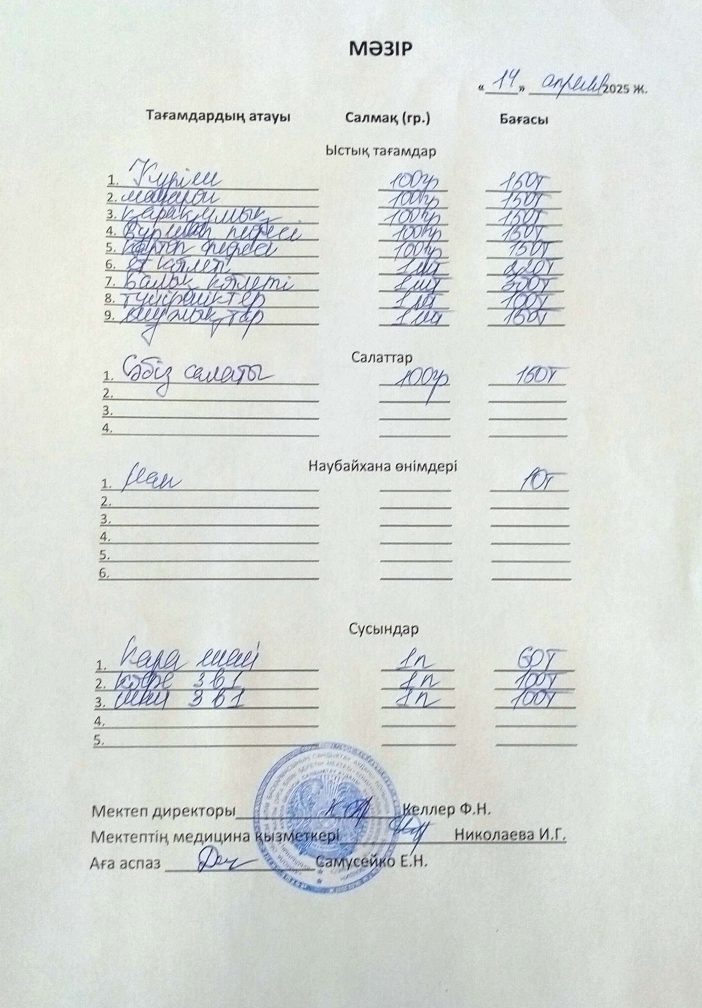 МӘЗІР
« 14 » апреля 2025 Ж.
Тағамдардың атауы Салмақ (гр.) Бағасы
Ыстық тағамдар
1. Күріш 100гр 150т
2. макарон 100гр 150т
3. қарақұмық 100гр 150т
4. бұршақ пюресі 100гр 150т
5. картоп пюреси 100гр 150т
6. ет котлеті 1шт 220т
7. балық котлеті 1шт 300т
8. түйіршіктер 1шт 100т
9. шұжықтар 1шт 150т
Салаттар
1. Сәбіз салаты 100гр 150т
2.
3.
4.
Наубайхана өнімдері
1. Нан 10т
2.
3.
4.
5.
6.
Сусындар
1. Кара шай 1п 60т
2. Кофе 3 в 1 1п 100т
3. шай 3 в 1 1п 100т
4.
5.
Мектеп директоры Келлер Ф.Н.
Мектептің медицина қызметкері Николаева И.Г.
Аға аспаз Самусейко Е.Н.